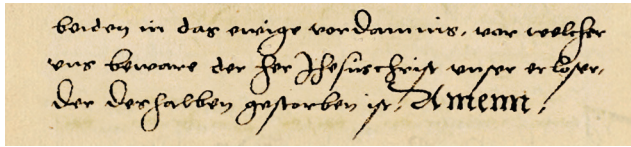 beiden in das ewige vordamnis, vor welcher
uns beware der her Jhesus christ unser erloser,
der deshalben gestorben ist, Amenn,